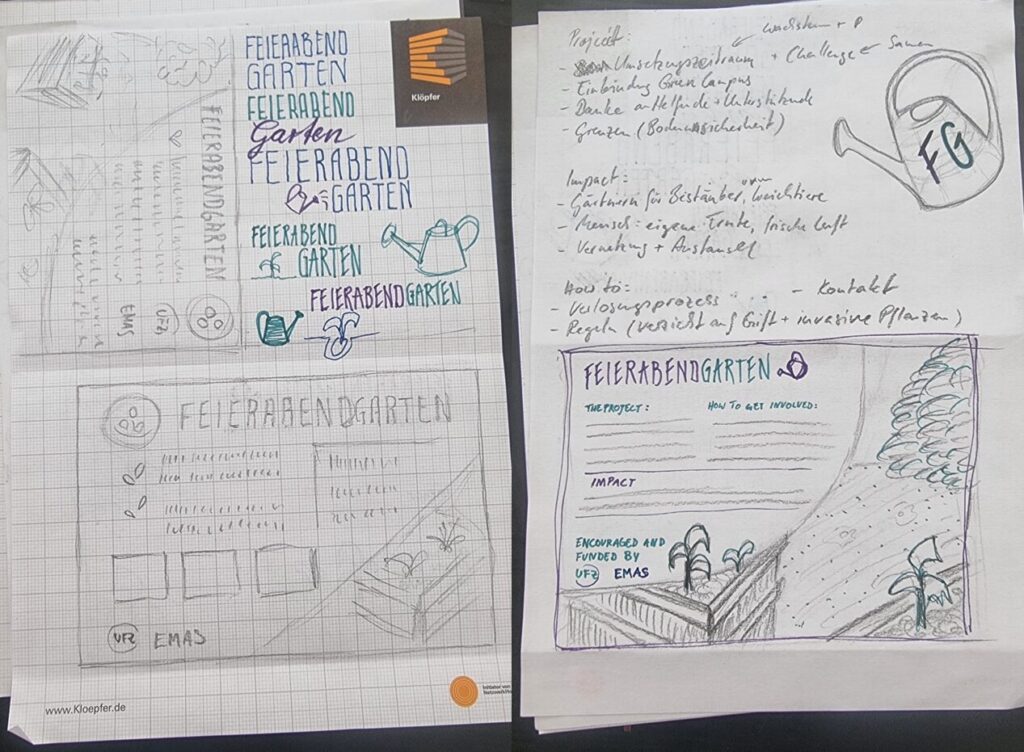 FEIERABEND
GARTEN
FEIERABEND
Garten
FEIERABEND
GARTEN
FEIERABEND
GARTEN
FEIERABENDGARTEN
Klöpfer
FEIERABENDGARTEN
UFZ
EMAS
FEIERABENDGARTEN
UFZ EMAS
www.Kloepfer.de
Initiator von
Projekt:
- Umsetzungszeitraum + Challenge ← Samen
- Einbindung Green Campus
- Danke an Helfende + Unterstützende
- Grenzen (Bodensicherheit)
FG
Impact:
- Gärtnern für Bestäuber, Weichtiere
- Mensch: eigene Ernte, frische Luft
- Vernetzung + Austausch
How to:
- Verlosungsprozess
- Kontakt
- Regeln (Verzicht auf Gift + invasive Pflanzen)
FEIERABENDGARTEN
THE PROJECT:
HOW TO GET INVOLVED:
IMPACT
ENCOURAGED AND
FUNDED BY
UFZ EMAS